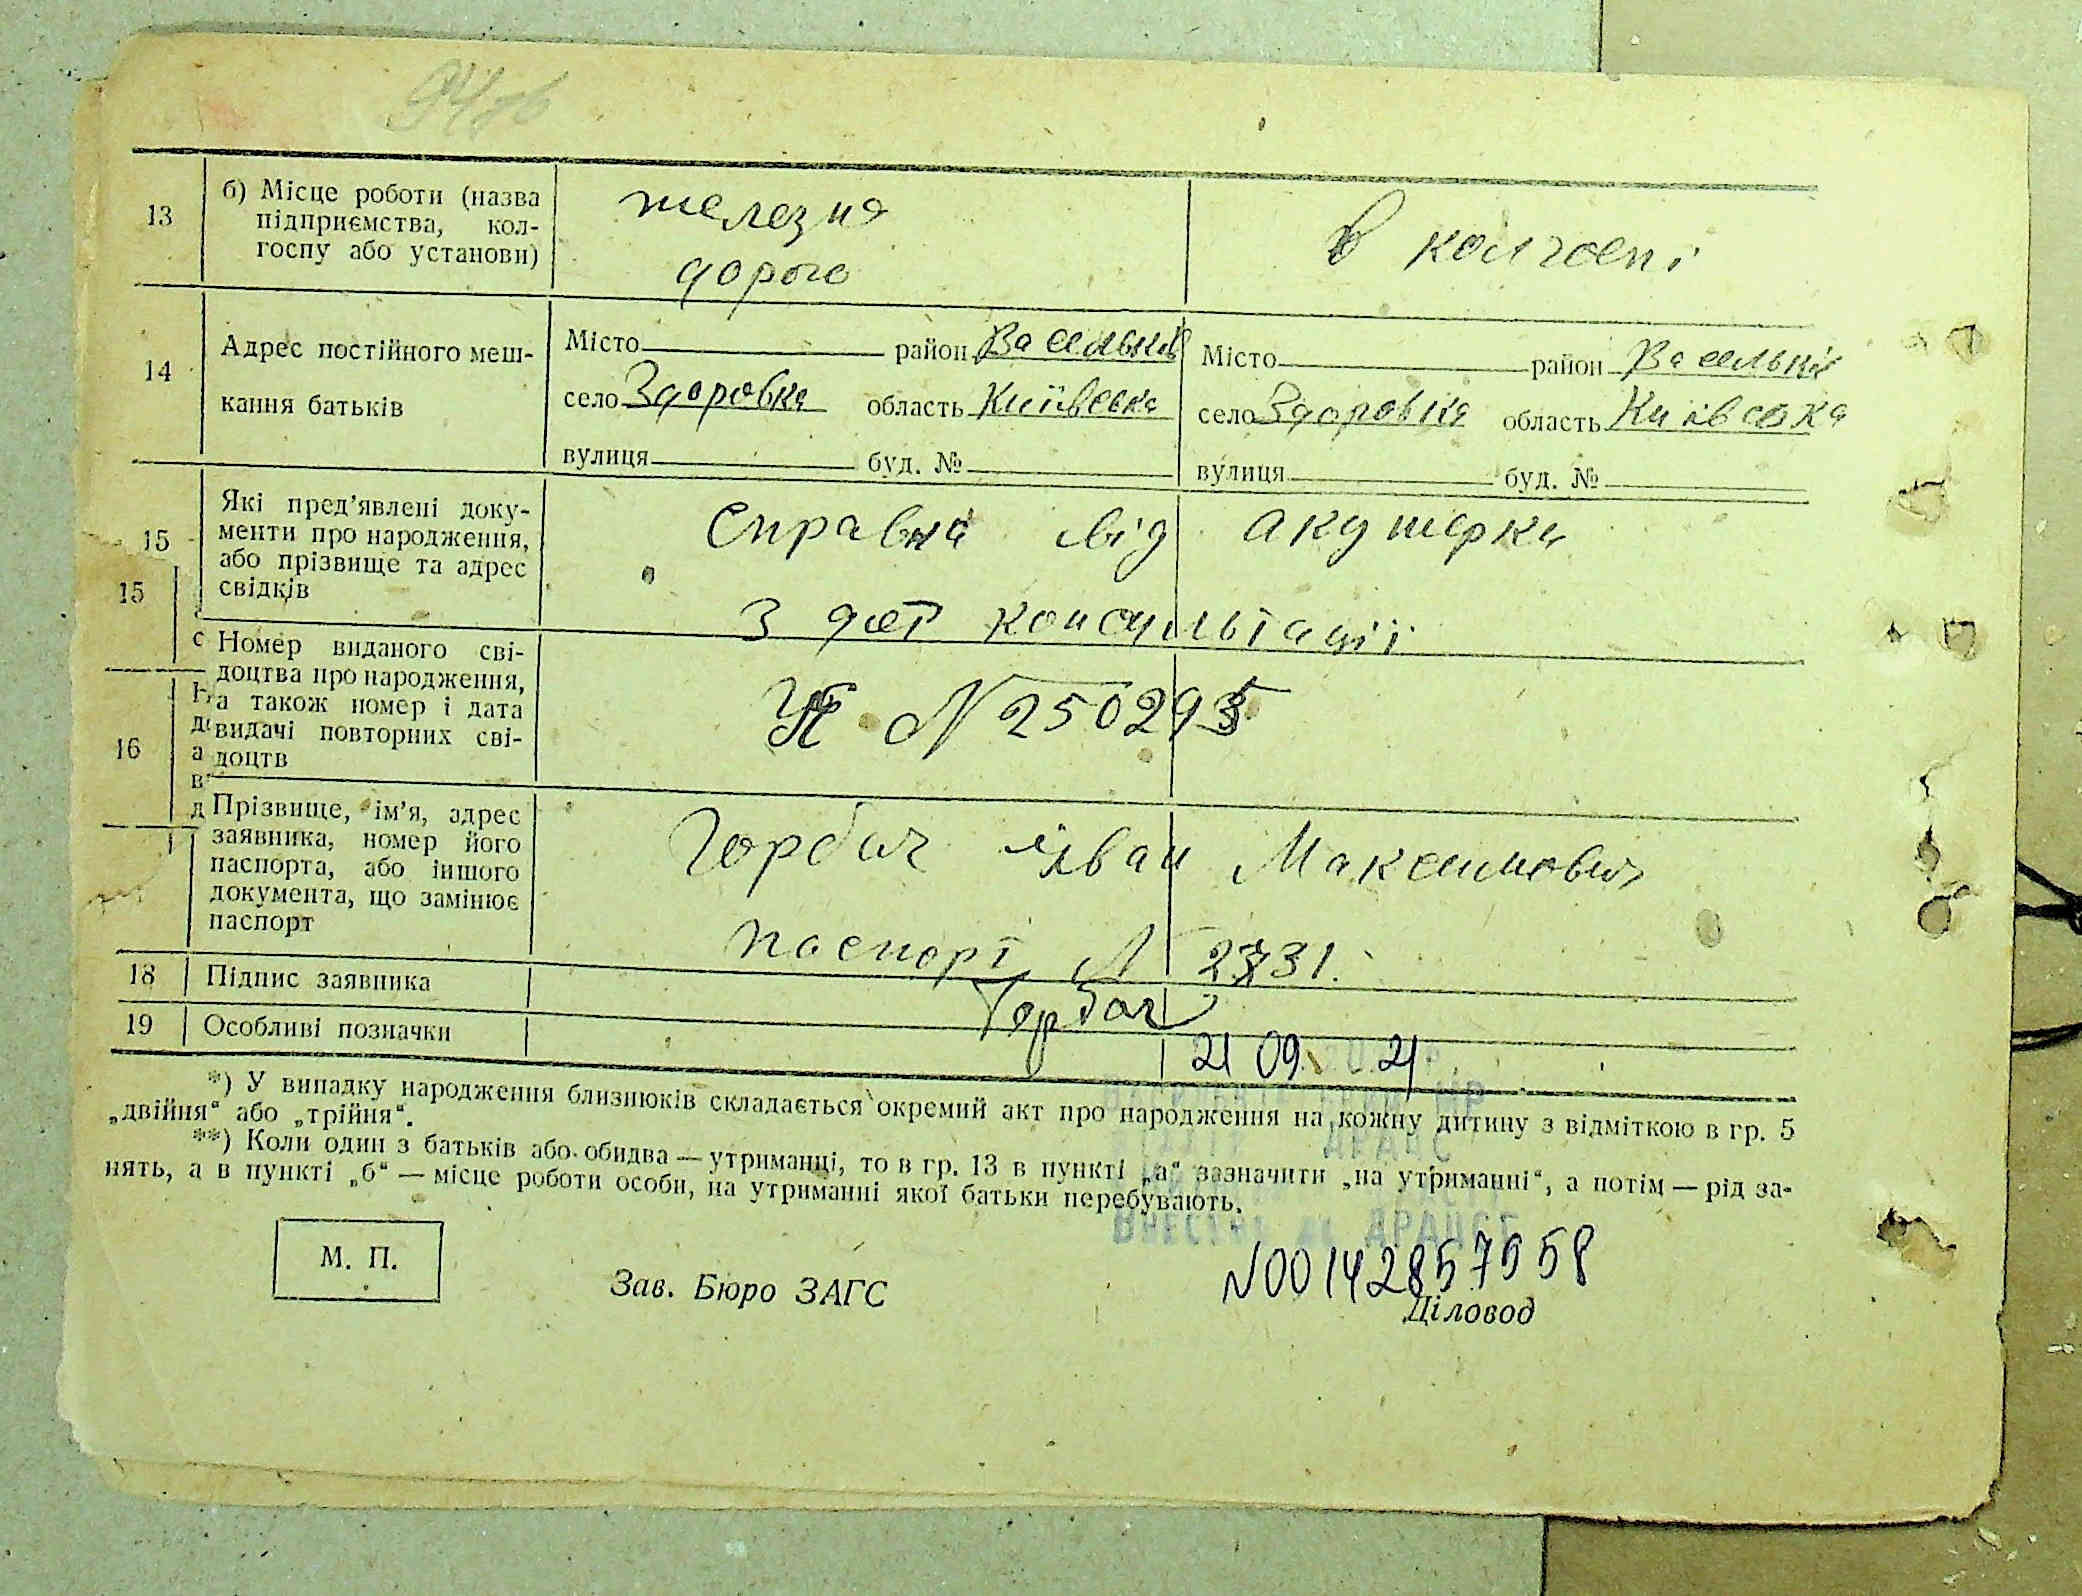 94зв
13
б) Місце роботи (назва
підприємства, кол-
госпу або установи)
железна
дорого
в колгоспі
14
Адрес постійного меш-
кання батьків
Місто район Васильків
село Здоровка область Київська
вулиця буд. №
Місто район Васильків
село Здоровка область Київська
вулиця буд. №
15
15
Які пред’явлені доку-
менти про народження,
або прізвище та адрес
свідків
справка від акушерки
з дет консультації
с
16
Номер виданого сві-
доцтва про народження,
а також номер і дата
видачі повторних сві-
доцтв
N 250295
а
в
д
Прізвище, ім’я, адрес
заявника, номер його
паспорта, або іншого
документа, що замінює
паспорт
Горбач Іван Максимович
паспорт № 2331.
18 Підпис заявника
Горбач
19 Особливі позначки
21 09 20 21 р.
*) У випадку народження близнюків складається окремий акт про народження на кожну дитину з відміткою в гр. 5
„двійня“ або „трійня“.
**) Коли один з батьків або обидва — утриманці, то в гр. 13 в пункті „а“ зазначити „на утриманні“, а потім — рід за-
нять, а в пункті „б“ — місце роботи особи, на утриманні якої батьки перебувають.
ДРАЦС
Внесено до ДРАЦСГ
N00142857958
М. П.
Зав. Бюро ЗАГС
Діловод